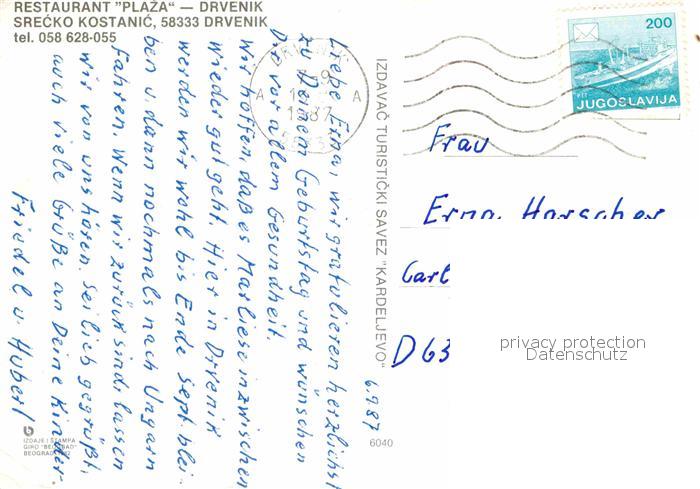 RESTAURANT "PLAŽA" — DRVENIK
SREĆKO KOSTANIĆ, 58333 DRVENIK
tel. 058 628-055
6.9.87
Liebe Erna, wir gratulieren herzlichst
zu Deinem Geburtstag und wünschen
Dir vor allem Gesundheit.
Wir hoffen, daß es Marliese inzwischen
wieder gut geht. Hier in Drvenik
werden wir wohl bis Ende Sept. blei-
ben u. dann nochmals nach Ungarn
fahren. Wenn wir zurück sind lassen
wir von uns hören. Sei lieb gegrüßt,
auch viele Grüße an Deine Kinder.
Friedel u. Hubert
IZDAJE I ŠTAMPA
GIRO "BEOGRAD"
BEOGRAD
IZDAVAČ TURISTIČKI SAVEZ "KARDELJEVO"
6040
1987
A
A
200
PTT
JUGOSLAVIJA
Frau
Erna Harscher
Carl
D 63
privacy protection
Datenschutz